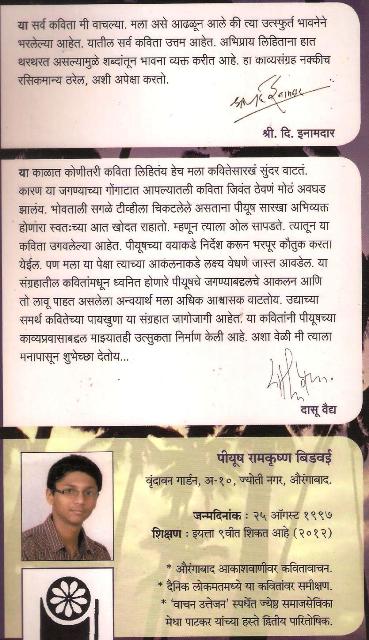 या सर्व कविता मी वाचल्या. मला असे आढळून आले की त्या उत्स्फुर्त भावनेने
भरलेल्या आहेत. यातील सर्व कविता उत्तम आहेत. अभिप्राय लिहिताना हात
थरथरत असल्यामुळे शब्दांतून भावना व्यक्त करीत आहे. हा काव्यसंग्रह नक्कीच
रसिकमान्य ठरेल, अशी अपेक्षा करतो.
श्री. दि. इनामदार
या काळात कोणीतरी कविता लिहितंय हेच मला कवितेसारखं सुंदर वाटतं.
कारण या जगण्याच्या गोंगाटात आपल्यातली कविता जिवंत ठेवणं मोठं अवघड
झालंय. भोवताली सगळे टीव्हीला चिकटलेले असताना पीयूष सारखा अभिव्यक्त
होणारा स्वतःच्या आत खोदत राहातो. म्हणून त्याला ओल सापडते. त्यातून या
कविता उगवलेल्या आहेत. पीयूषच्या वयाकडे निर्देश करून भरपूर कौतुक करता
येईल. पण मला या पेक्षा त्याच्या आकलनाकडे लक्ष्य वेधणे जास्त आवडेल. या
संग्रहातील कवितांमधून ध्वनित होणारे पीयूषचे जगण्याबद्दलचे आकलन आणि
तो लावू पाहत असलेला अन्वयार्थ मला अधिक आश्वासक वाटतोय. उद्याच्या
समर्थ कवितेच्या पायखुणा या संग्रहात जागोजागी आहेत. या कवितांनी पीयूषच्या
काव्यप्रवासाबद्दल माझ्यातही उत्सुकता निर्माण केली आहे. अशा वेळी मी त्याला
मनापासून शुभेच्छा देतोय...
दासू वैद्य
पीयूष रामकृष्ण बिडवई
वृंदावन गार्डन, अ-१०, ज्योती नगर, औरंगाबाद.
जन्मदिनांक : २५ ऑगस्ट १९९७
शिक्षण : इयत्ता ९वीत शिकत आहे (२०१२)
* औरंगाबाद आकाशवाणीवर कवितावाचन.
* दैनिक लोकमतमध्ये या कवितांवर समीक्षण.
* 'वाचन उत्तेजन' स्पर्धेत ज्येष्ठ समाजसेविका
मेधा पाटकर यांच्या हस्ते द्वितीय पारितोषिक.